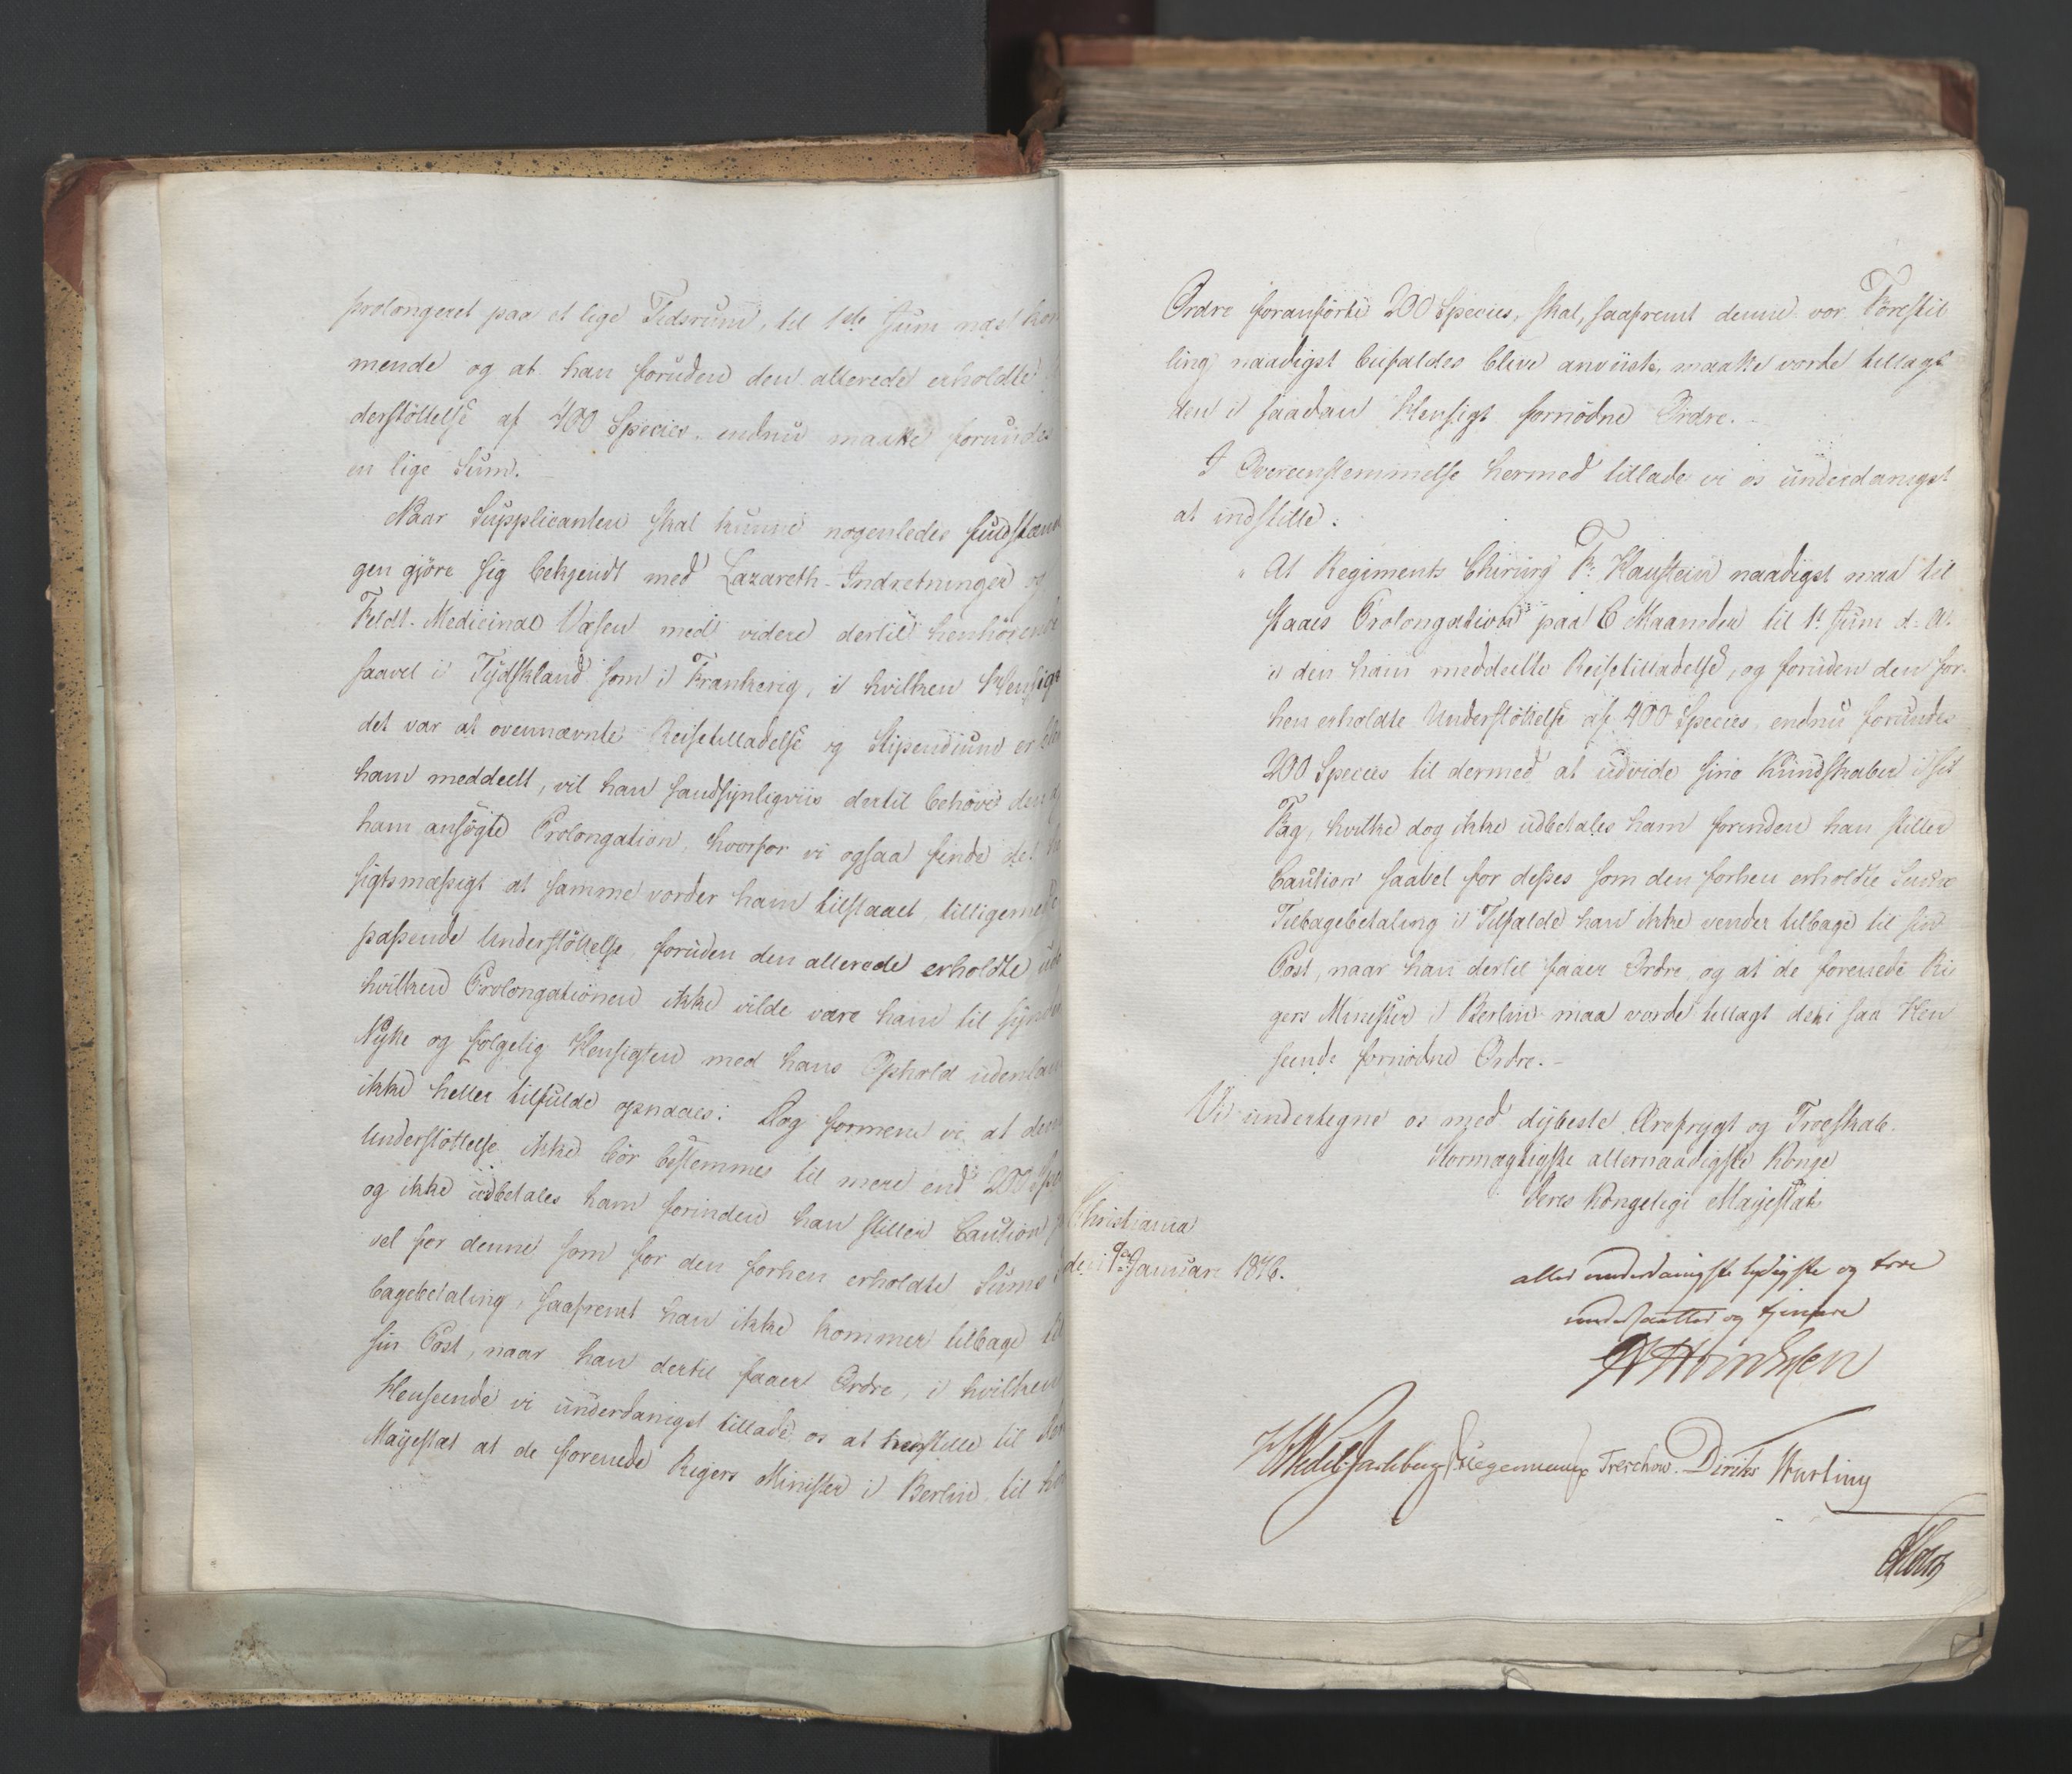 prolongeret paa et lige Tidsrum, til 1ste Juni næst kom
mende og at han foruden den allerede erholdte
derstöttelse af 400 Species endnu maatte forundes
en lige Sum.
Naar Supplicanten skal kunne nogenledes fuldstæn
gen gjöre sig bekjendt med Lazareth-Indretninger og
Feldt-Medicinal Væsen med videre dertil henhörende
saavel i Tydskland som i Frankerig, i hvilken Hensigt
det var at ovennævnte Reisetilladelse og Stipendium er ble
ham meddeelt, vil han sandsynligviis dertil behöve den
ham ansögte Prolongation, hvorfor vi ogsaa finde det
sigtsmæssigt at samme vorder ham tilstaaet, tilligemed
passende Understöttelse, foruden den allerede erholdte
hvilken Prolongationen ikke vilde være ham til synde
Nytte og fölgelig Hensigten med hans Ophold udenlan
ikke heller tilfulde opnaaes: Dog formene vi, at denne
Understöttelse ikke bör bestemmes til mere end 200 Spe
og ikke udbetales ham forinden han stiller Caution
vel for denne som for den forhen erholdte Sums
bagebetaling, saafremt han ikke kommer tilbage til
sin Post, naar han dertil faaer Ordre, i hvilken
Henseende vi underdanigst tillade os at henstille til
Mayestæt at de forenede Rigers Minister i Berlin, til
Ordre foranförte 200 Species, skal, saafremt denne vor Forestil
ling naadigst biefaldes blive anviiste, maatte vorde tillagt
den i saadan Hensigt fornödne Ordre.
I Overeenstemmelse hermed tillade vi os underdanigst
at indstille:
" At Regiments Chirurg Fr. Haustein naadigst maa til
staaes Prolongation paa 6 Maaneder til 1st Juni d: A:
i den ham meddeelte Reisetilladelse, og foruden den for
hen erholdte Understöttelse af 400 Species endnu forundes
200 Species til dermed at udvide sine Kundskaber i sit
Fag, hvilke dog ikke udbetales ham forinden han stiller
Caution saavel for disses som den forhen erholdte Sums
Tilbagebetaling i Tilfælde han ikke vender tilbage til sin
Post, naar han dertil faaer Ordre, og at de forenede Ri
gers Minister i Berlin maa vorde tillagt den i saa Hen
seende fornödne Ordre. -
Vi undertegne os med dybeste Ærefrygt og Troeskab.
Stormægtigste allernaadigste Konge
Deres Kongelige Mayestæts
Christiania
den 9de Januari 1816.
allerunderdanigste lydigste og troe
undersaatter og tjenere
Wedel Jarlsberg Hegermann Treschow. Diriks Mariboe
Holst